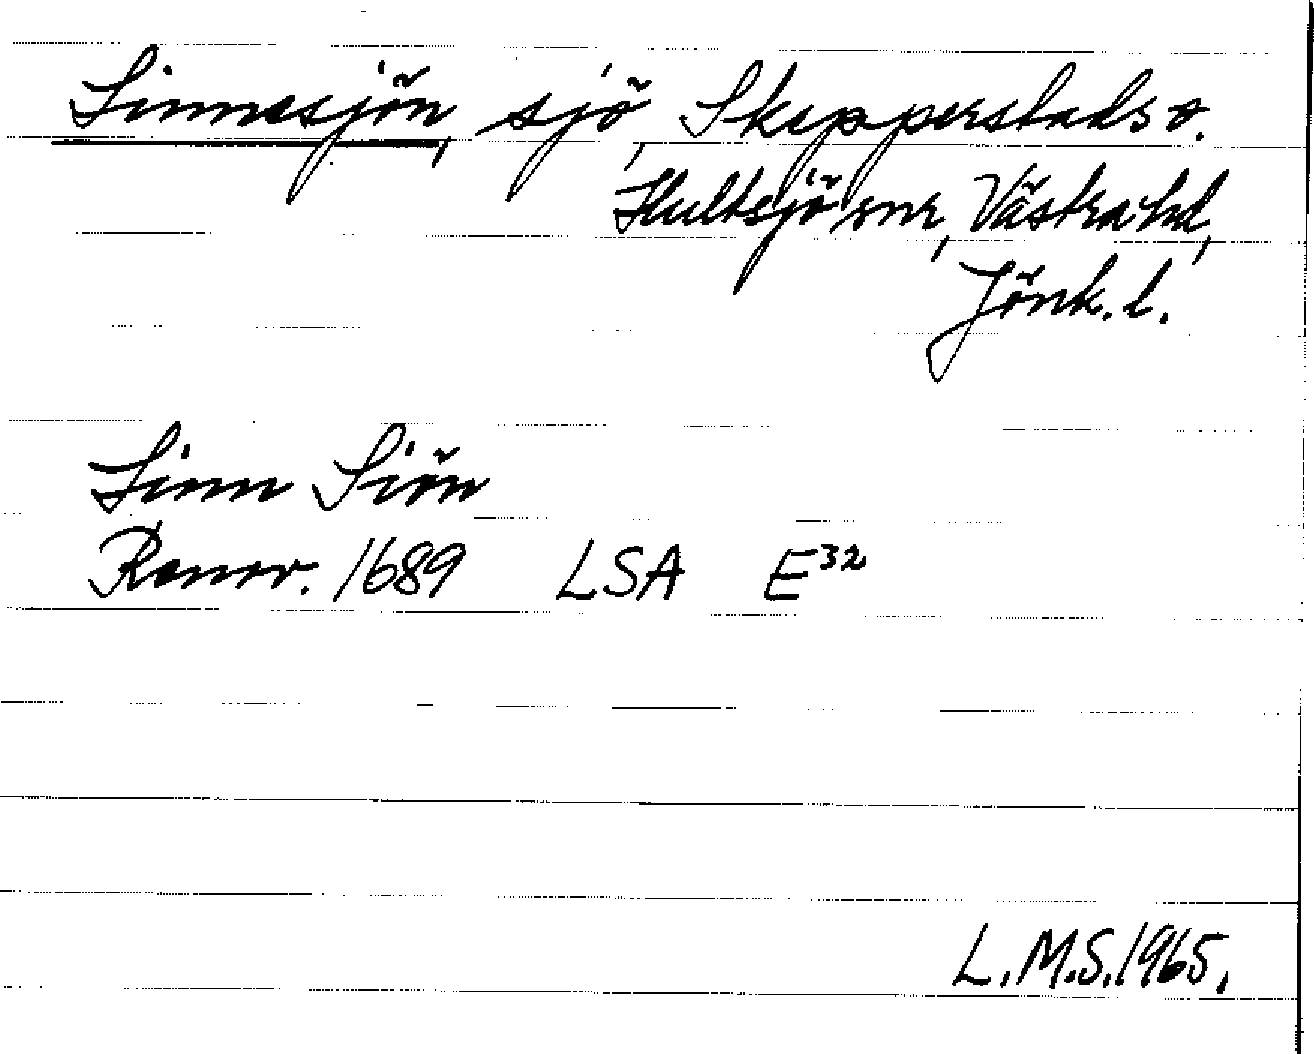 Linnesjön, sjö, Skepperstads o.
Hultsjö snr, Västra hd,
Jönk. l.
Linn Siön
Renov. 1689 LSA E³²
L.M.S. 1965.